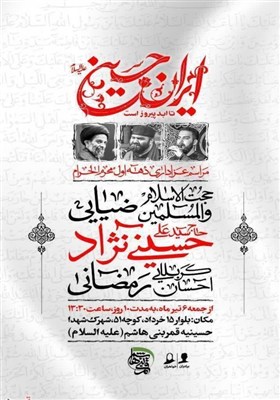 ایران حسین علیه‌السلام
تا ابد پیروز است
مراسم عزاداری دهه اول محرم الحرام
حجت الاسلام
والمسلمین ضیایی
حاج سید علی
حسینی نژاد
کربلایی
احسان رمضانی
از جمعه ۶ تیر ماه، به مدت ۱۰ روز، ساعت ۱۳:۳۰
مکان: بلوار ۱۵ خرداد، کوچه ۵۱، شهرک شهدا
حسینیه قمر بنی هاشم (علیه السلام)
برادران
خواهران